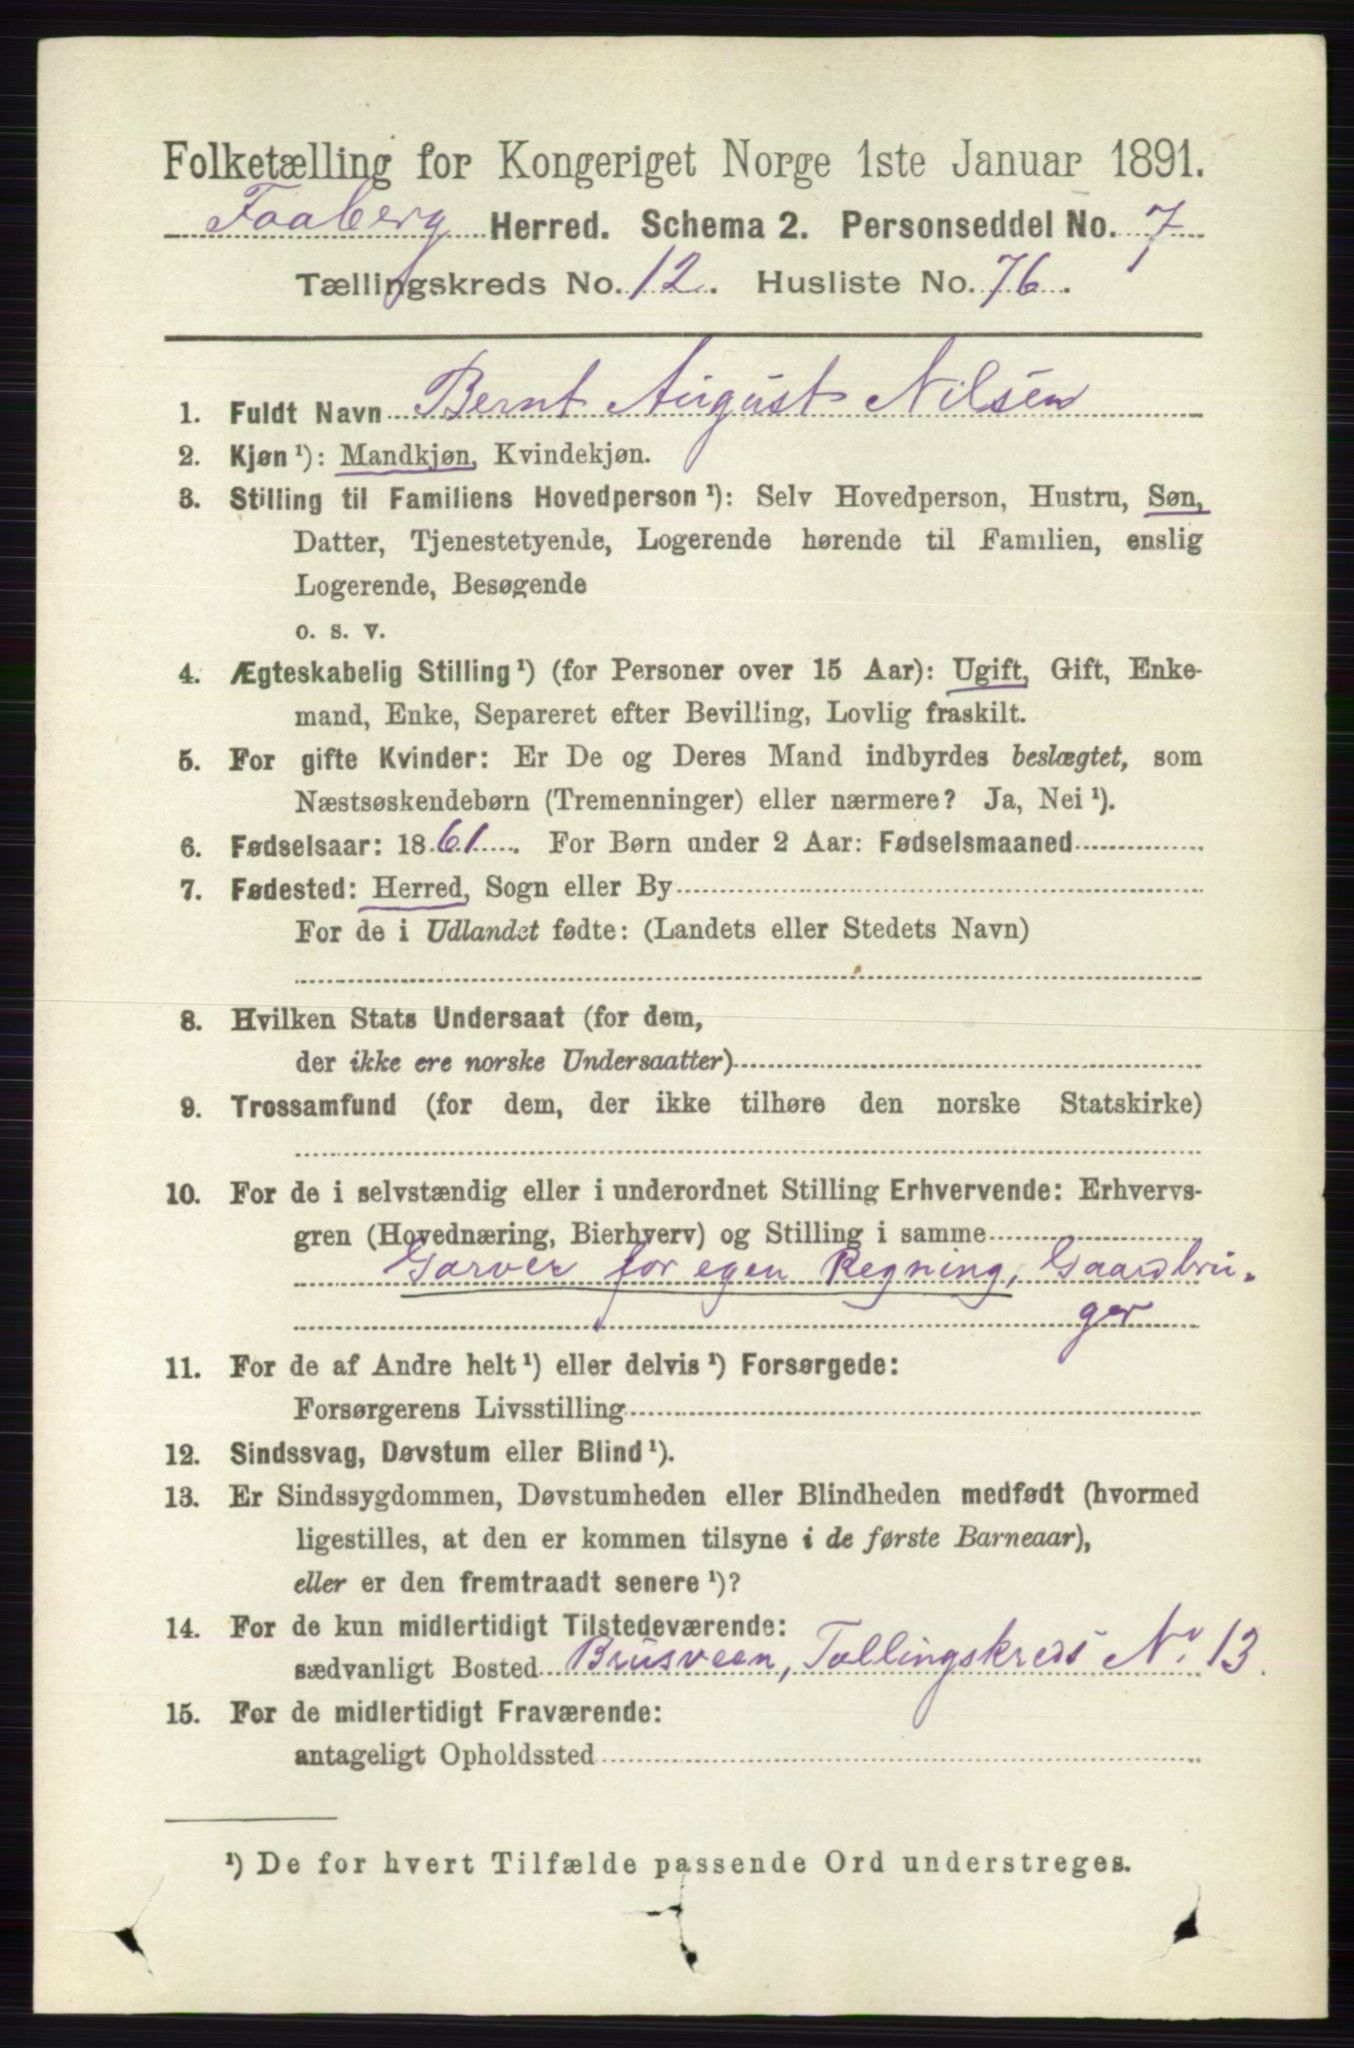 Folketælling for Kongeriget Norge 1ste Januar 1891.
Faaberg Herred. Schema 2. Personseddel No. 7
Tællingskreds No. 12. Husliste No. 76.
1. Fuldt Navn Bernt August Nilsen
2. Kjøn ¹): Mandkjøn, Kvindekjøn.
3. Stilling til Familiens Hovedperson ¹): Selv Hovedperson, Hustru, Søn,
Datter, Tjenestetyende, Logerende hørende til Familien, enslig
Logerende, Besøgende
o. s. v.
4. Ægteskabelig Stilling ¹) (for Personer over 15 Aar): Ugift, Gift, Enke-
mand, Enke, Separeret efter Bevilling, Lovlig fraskilt.
5. For gifte Kvinder: Er De og Deres Mand indbyrdes beslægtet, som
Næstsøskendebørn (Tremenninger) eller nærmere? Ja, Nei ¹).
6. Fødselsaar: 1861. For Børn under 2 Aar: Fødselsmaaned
7. Fødested: Herred, Sogn eller By
For de i Udlandet fødte: (Landets eller Stedets Navn)
8. Hvilken Stats Undersaat (for dem,
der ikke ere norske Undersaatter)
9. Trossamfund (for dem, der ikke tilhøre den norske Statskirke)
10. For de i selvstændig eller i underordnet Stilling Erhvervende: Erhvervs-
gren (Hovednæring, Bierhverv) og Stilling i samme
Garver for egen Regning, Gaardbru-
ger
11. For de af Andre helt ¹) eller delvis ¹) Forsørgede:
Forsørgerens Livsstilling
12. Sindssvag, Døvstum eller Blind ¹).
13. Er Sindssygdommen, Døvstumheden eller Blindheden medfødt (hvormed
ligestilles, at den er kommen tilsyne i de første Barneaar),
eller er den fremtraadt senere ¹)?
14. For de kun midlertidigt Tilstedeværende:
sædvanligt Bosted Brusveen, Tællingskreds No 13.
15. For de midlertidigt Fraværende:
antageligt Opholdssted
¹) De for hvert Tilfælde passende Ord understreges.